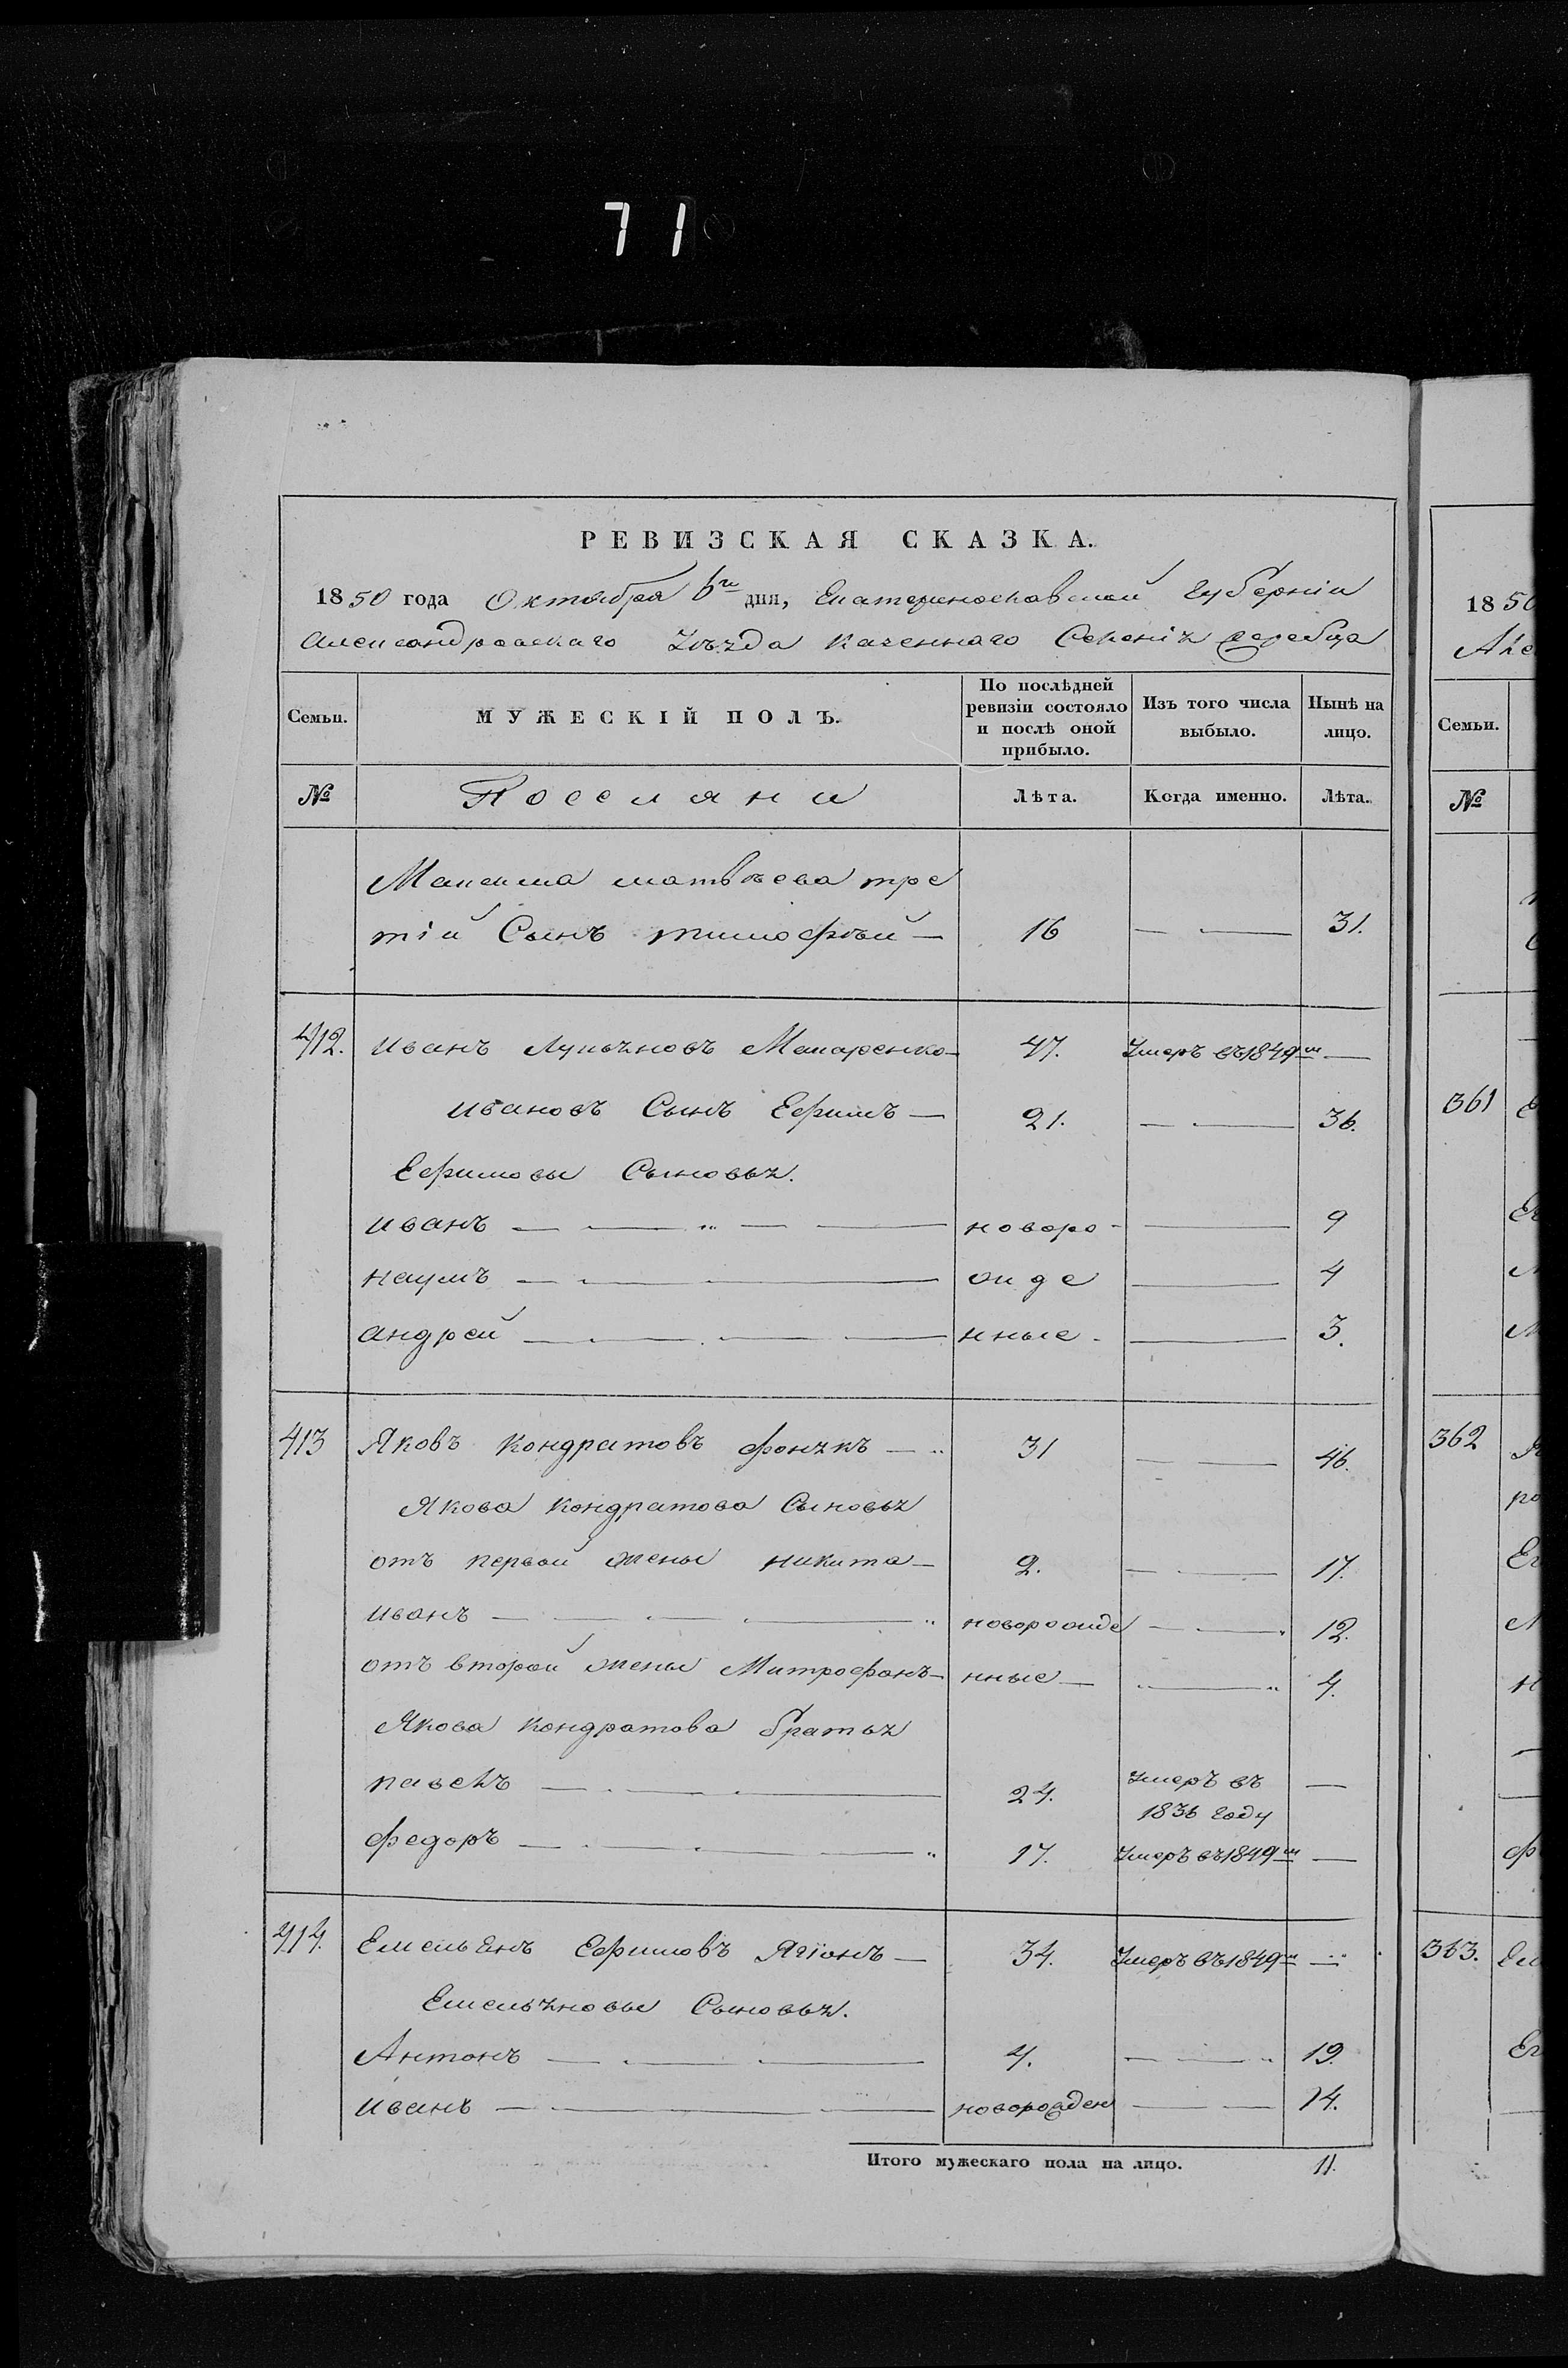 71
РЕВИЗСКАЯ СКАЗКА.
1850 года Октября 6го дня, Екатеринославской Губерніи
Александровскаго Уѣзда казеннаго Селенія Жеребца
Семьи. МУЖЕСКІЙ ПОЛЪ. По послѣдней ревизіи состояло и послѣ оной прибыло. Изъ того числа выбыло. Нынѣ на лицо.
№ Поселяни Лѣта. Когда именно. Лѣта.
Максима матвѣева тре
тій Сынъ тимофѣй — 16 — — 31.
412. иванъ Лукьяновъ Макаренко — 47. Умеръ въ 1849м —
ивановъ Сынъ Ефимъ — 21. — — 36.
Ефимовы Сыновья.
иванъ — новоро- — 9
наумъ — жде — 4
андрей — нные — 3.
413 Яковъ кондратовъ фонякъ — 31 — — 46.
Якова кондратова Сыновья
отъ первой жены никита — 2. — — 17.
иванъ — новорожде — — 12.
отъ второй жены Митрофанъ — нные — — 4.
Якова кондратова братья
павелъ — 24. Умеръ въ 1836 году —
федоръ — 17. Умеръ въ 1849м —
414. Емельянъ Ефимовъ — 34. Умеръ въ 1849м —
Емельяновы Сыновья.
Антонъ — 4. — — 19.
иванъ — новорожден — — 14.
Итого мужескаго пола на лицо. 11.
1850
Але
Семьи.
№
361
362
363.